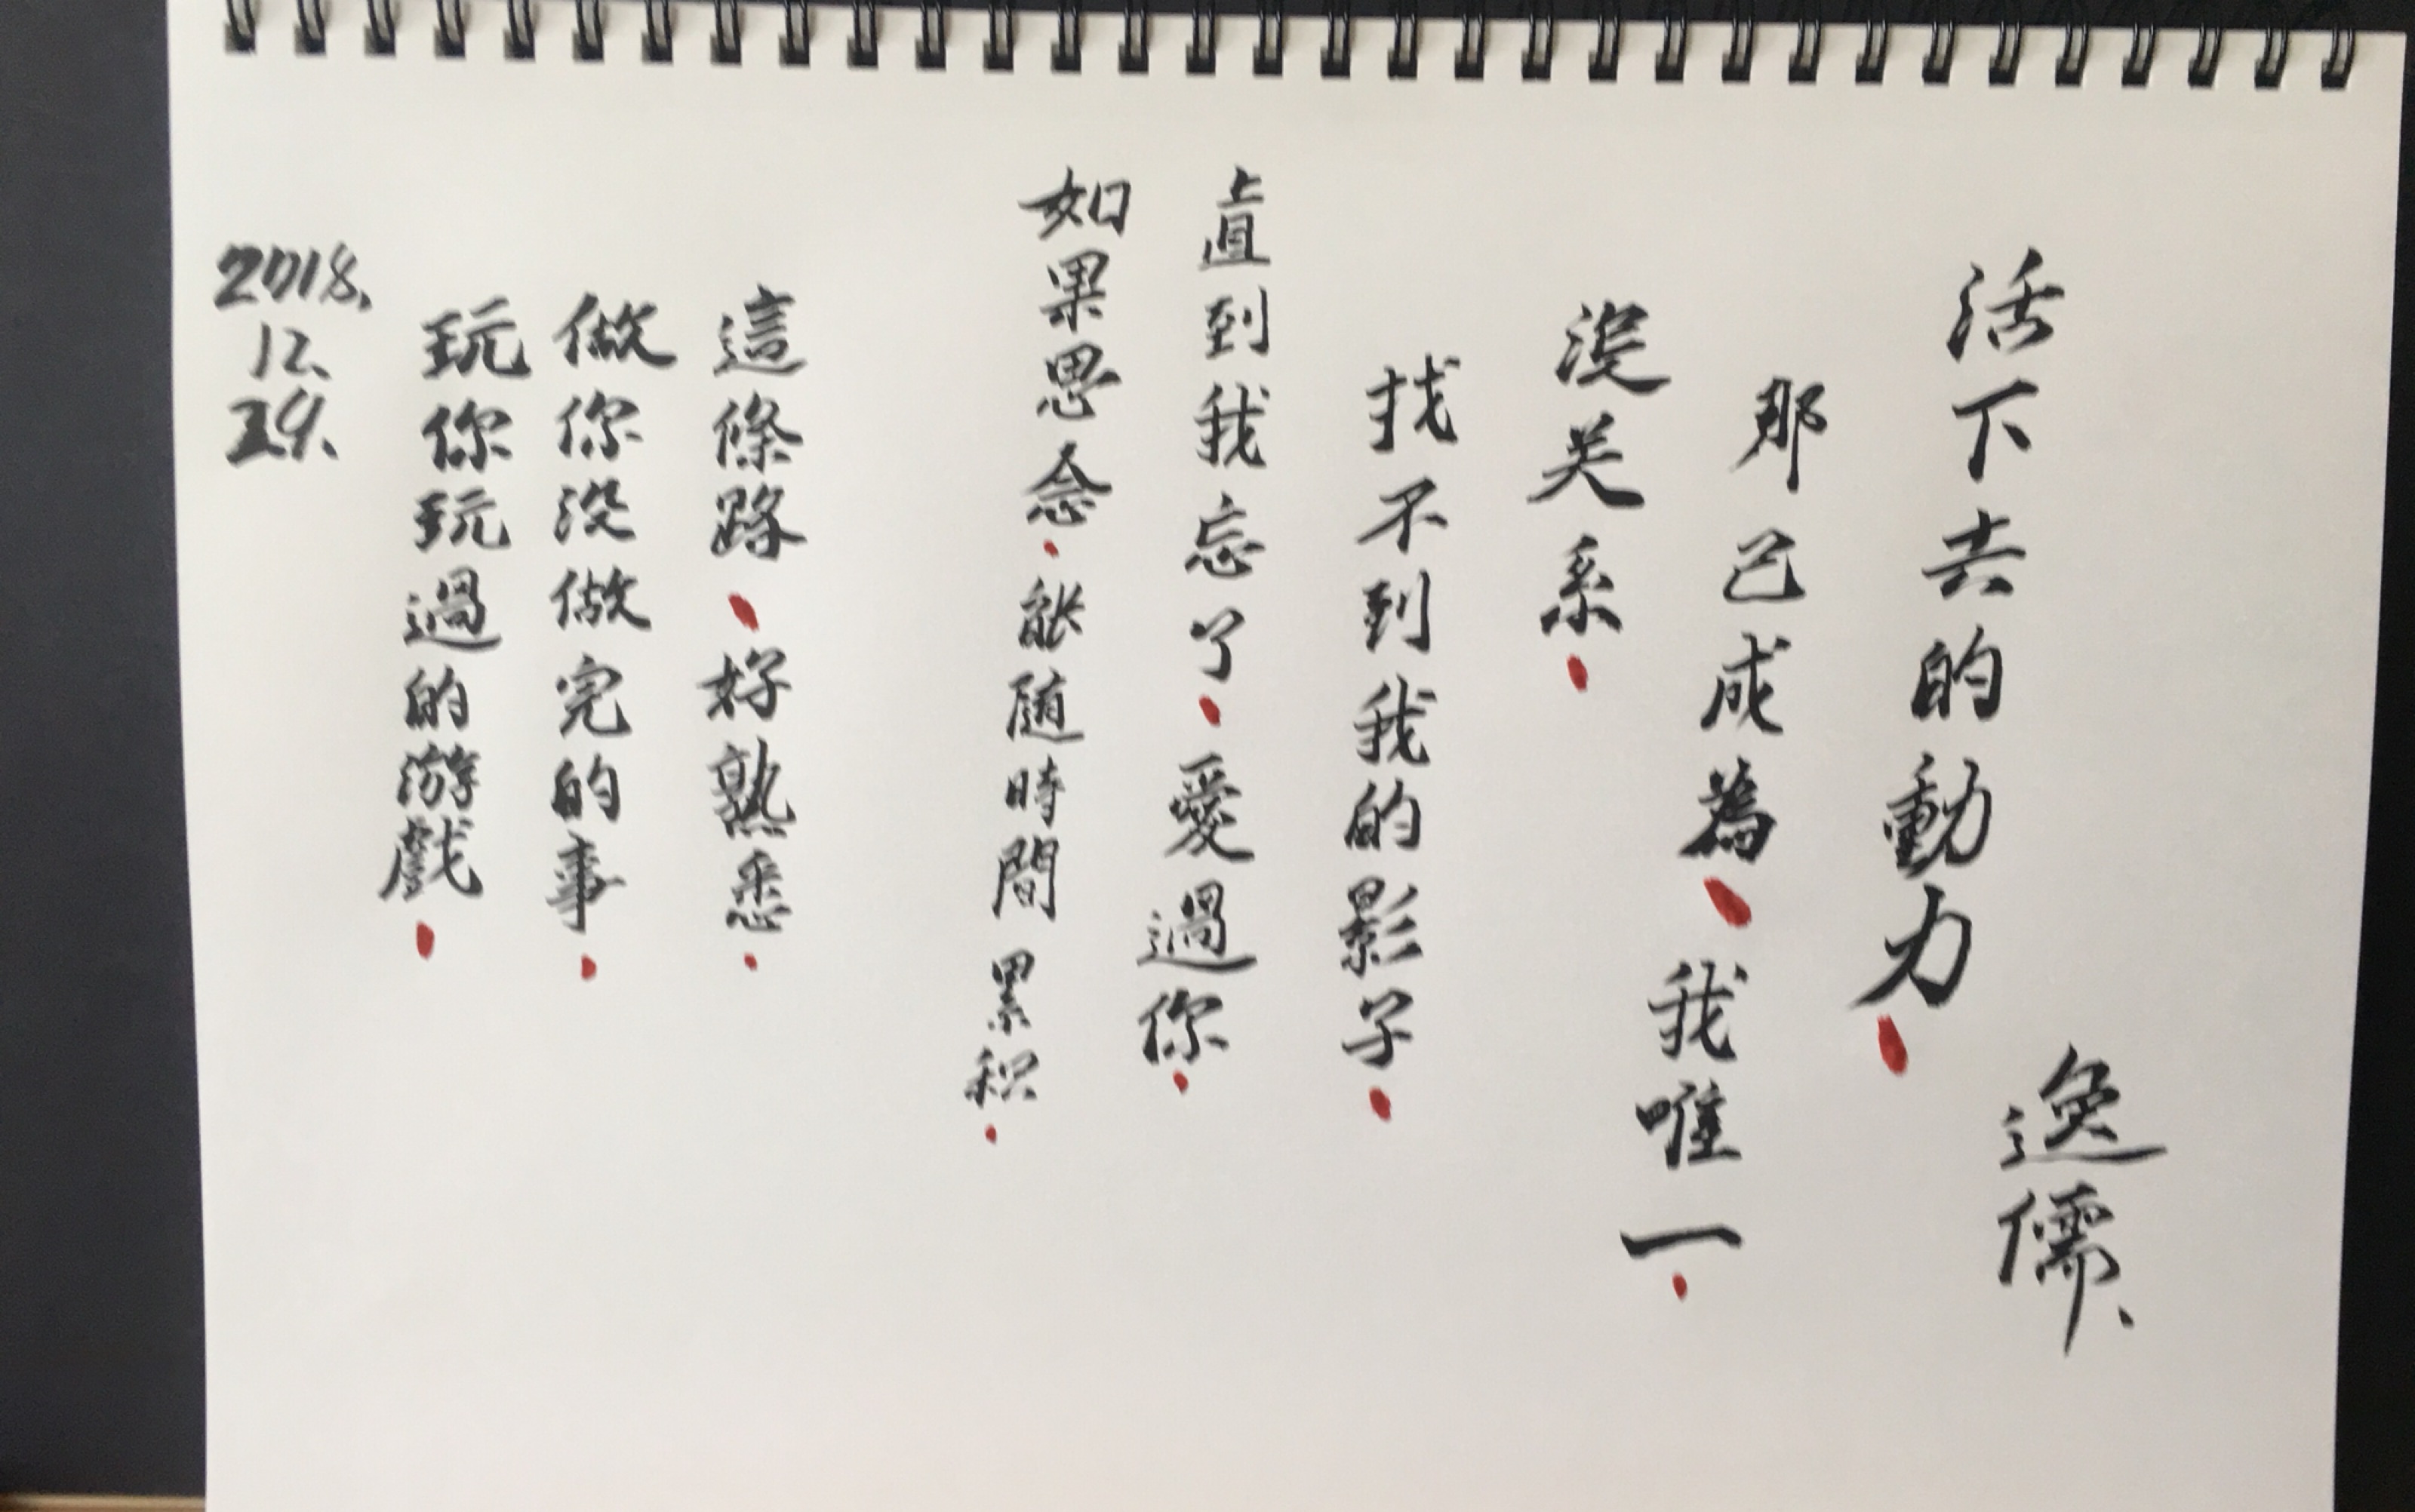 逸儒、
活下去的動力、
那已成為、我唯一、
没关系、
找不到我的影子、
直到我忘了、愛過你、
如果思念、能随時間累积、
這條路、好熟悉、
做你没做完的事、
玩你玩過的游戲、
2018.
12.
29.